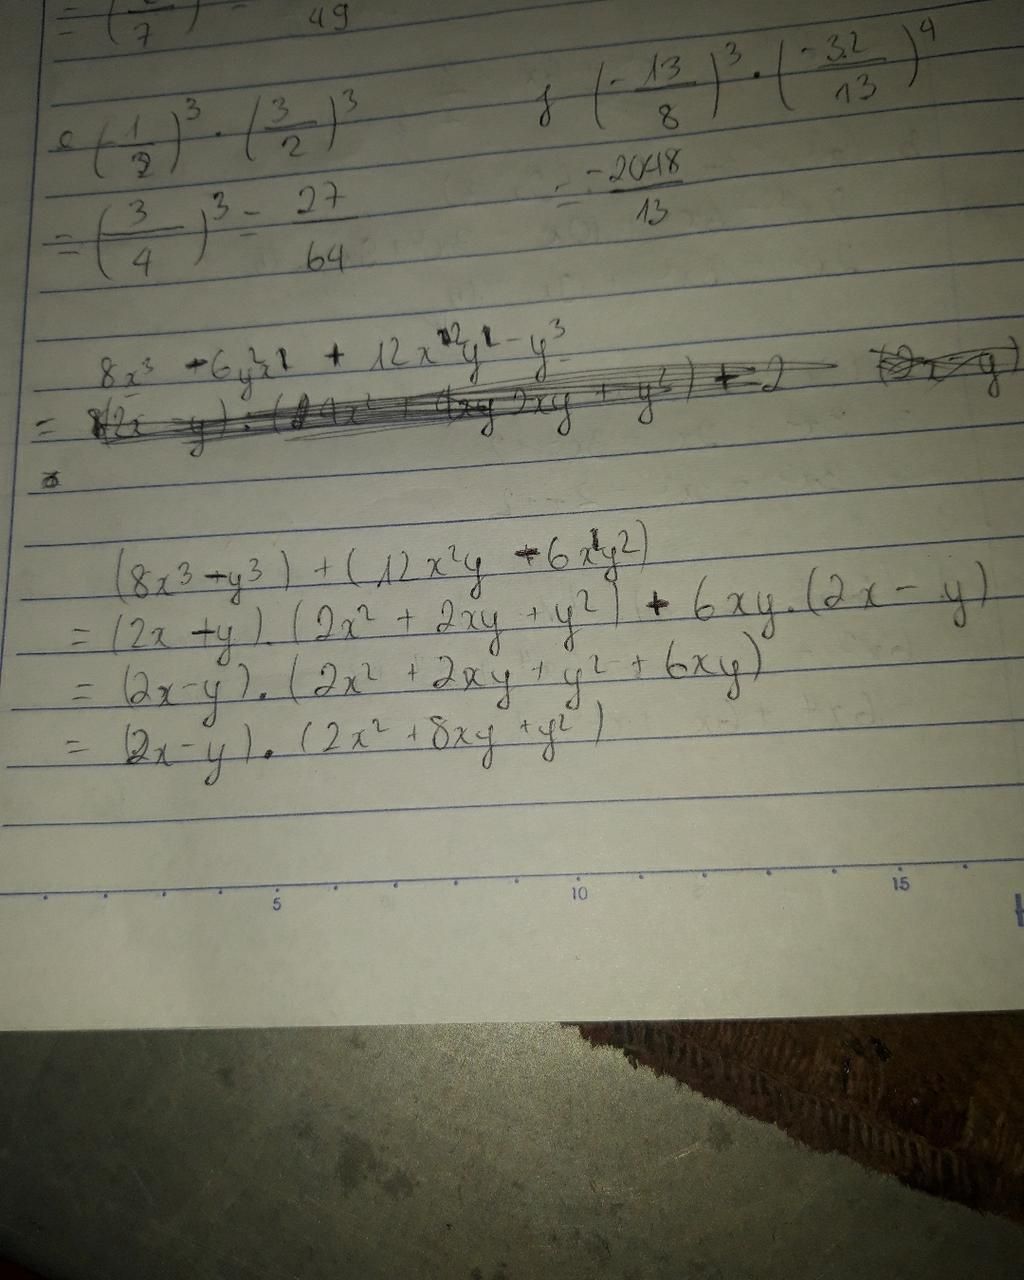 = ( /7) = 49
e (1/2)³ · (3/2)³
= (3/4)³ = 27/64
f (-13/8)³ · (-32/13)⁴
= -2048/13
8x³ - 6y²x¹ + 12x²y¹ - y³
=
(8x³ - y³) + (12x²y - 6x¹y²)
= (2x - y) . (2x² + 2xy + y²) + 6xy.(2x - y)
= (2x - y) . (2x² + 2xy + y² + 6xy)
= (2x - y) . (2x² + 8xy + y²)
5 10 15